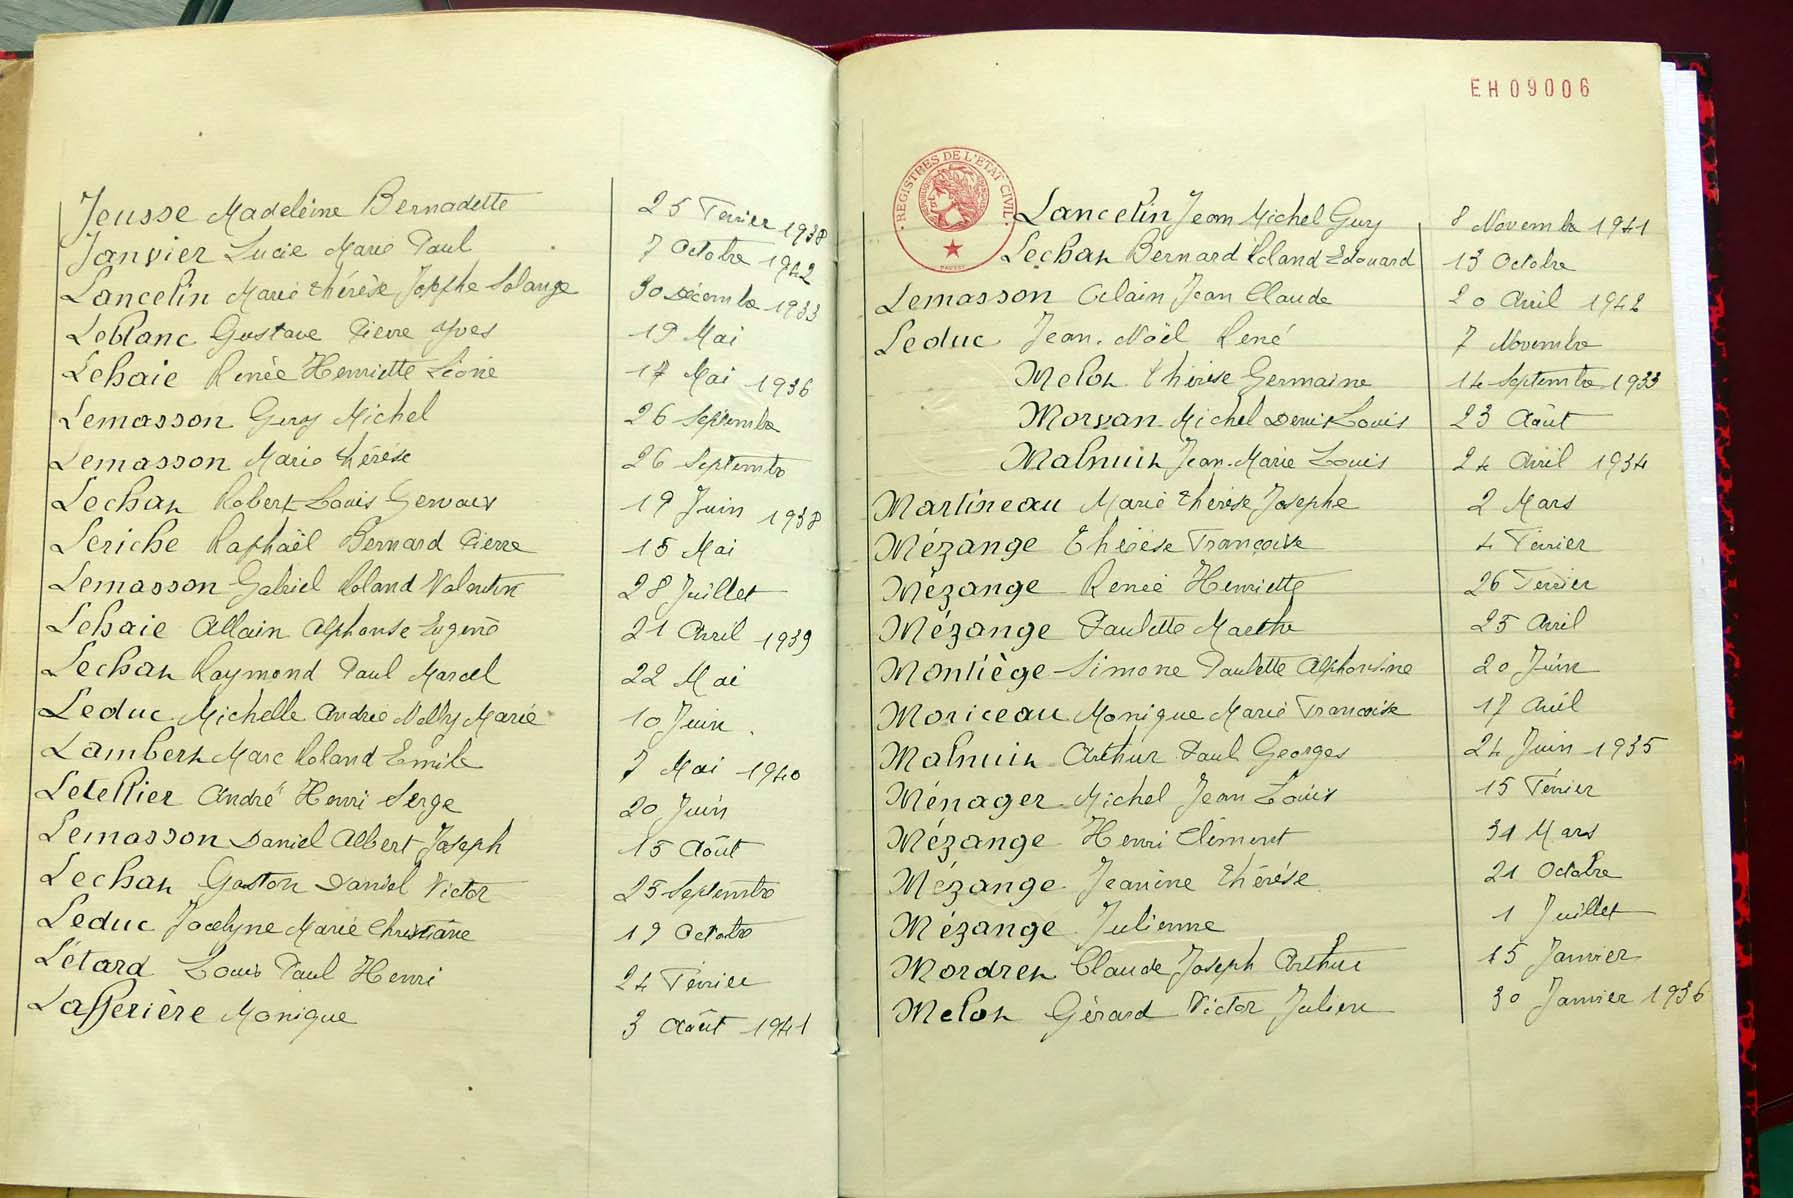 Jousse Madeleine Bernadette 25 Février 1938
Janvier Lucie Marie Paul 7 Octobre 1942
Lancelin Marie Thérèse Josèphe Solange 30 Décembre 1933
Leblanc Gustave Pierre Yves 19 Mai
Lehaie Renée Henriette Léonie 17 Mai 1936
Lemasson Guy Michel 26 Septembre
Lemasson Marie Thérèse 26 Septembre
Lechat Robert Louis Gervais 19 Juin 1938
Leriche Raphaël Bernard Pierre 15 Mai
Lemasson Gabriel Roland Valentin 28 Juillet
Lehaie Allain Alphonse Eugène 21 Avril 1939
Lechat Raymond Paul Marcel 22 Mai
Leduc Michelle Andrée Nelly Marie 10 Juin
Lambert Marc Roland Emile 7 Mai 1940
Letellier André Henri Serge 20 Juin
Lemasson Daniel Albert Joseph 15 Août
Lechat Gaston Daniel Victor 25 Septembre
Leduc Jocelyne Marie Christiane 19 Octobre
Létard Louis Paul Henri 24 Février
Lafferière Monique 3 Août 1941
EH09006
REGISTRES DE L'ETAT CIVIL
Lancelin Jean Michel Guy 8 Novembre 1941
Lechat Bernard Roland Edouard 13 Octobre
Lemasson Alain Jean Claude 20 Avril 1942
Leduc Jean-Noël René 7 Novembre
Melot Thérèse Germaine 14 Septembre 1933
Morvan Michel Denis Louis 23 Août
Malnuit Jean-Marie Louis 24 Avril 1934
Martineau Marie Thérèse Josèphe 2 Mars
Mézange Thérèse Françoise 4 Février
Mézange Renée Henriette 26 Février
Mézange Paulette Marthe 25 Avril
Montiège Simone Paulette Alphonsine 20 Juin
Moriceau Monique Marie Françoise 17 Avril
Malnuit Arthur Paul Georges 24 Juin 1935
Ménager Michel Jean Louis 15 Février
Mézange Henri Clément 31 Mars
Mézange Jeanine Thérèse 21 Octobre
Mézange Julienne 1 Juillet
Mordret Claude Joseph Arthur 15 Janvier
Melot Gérard Victor Julien 30 Janvier 1936